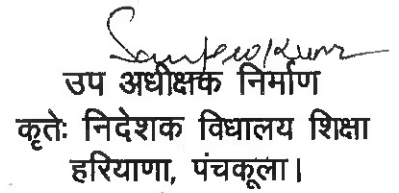 Sanjeev Kumar
उप अधीक्षक निर्माण
कृतेः निदेशक विधालय शिक्षा
हरियाणा, पंचकूला।